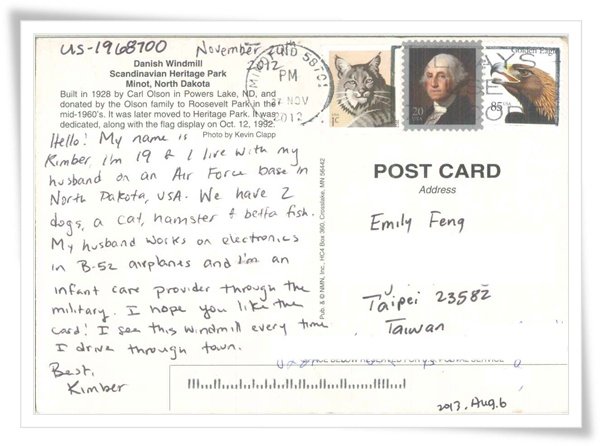 US-1968700
November 20th
2012
Danish Windmill
Scandinavian Heritage Park
Minot, North Dakota
Built in 1928 by Carl Olson in Powers Lake, ND, and
donated by the Olson family to Roosevelt Park in the
mid-1960's. It was later moved to Heritage Park. It was
dedicated, along with the flag display on Oct. 12, 1992.
Photo by Kevin Clapp
Hello! My name is
Kimber. I'm 19 & I live with my
husband on an Air Force base in
North Dakota, USA. We have 2
dogs, a cat, hamster & betta fish.
My husband works on electronics
in B-52 airplanes and I'm an
infant care provider through the
military. I hope you like the
card! I see this windmill every time
I drive through town.
Best,
Kimber
Pub. & © NMN, Inc., HC4 Box 360, Crosslake, MN 56442
PM
NOV
2012
1c
20
85
USA
POST CARD
Address
Emily Feng
Taipei 23582
Taiwan
2013. Aug. 6